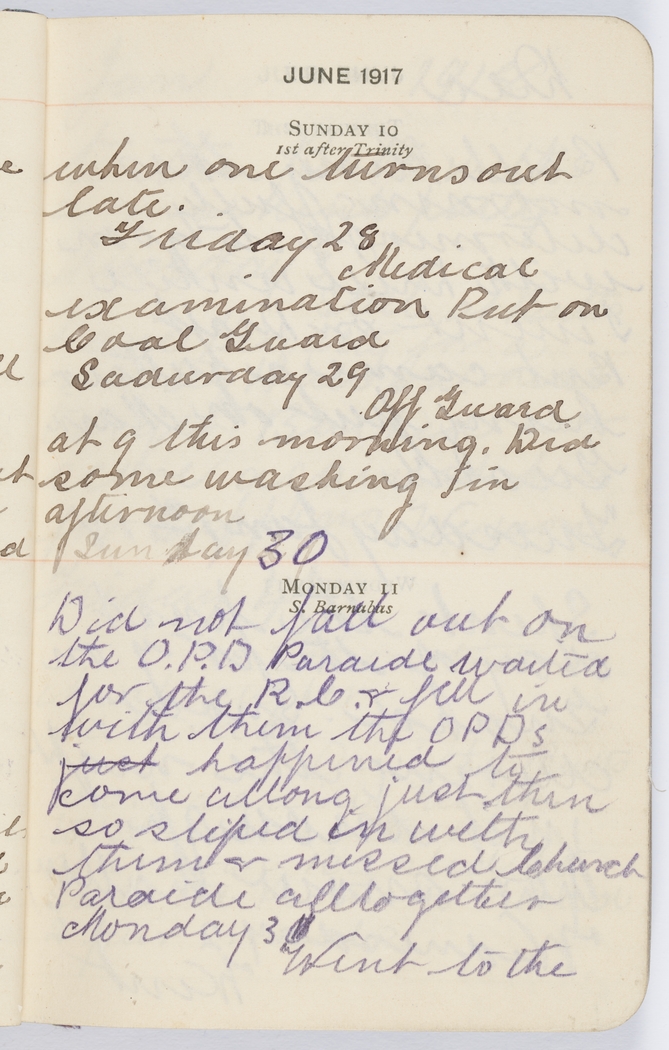 JUNE 1917
SUNDAY 10
1st after Trinity
when one turns out
late.
Friday 28
Medical
examination Put on
Coal Guard
Sadurday 29
Off Guard
at 9 this morning. Did
some washing in
afternoon
Sunday 30
MONDAY 11
S. Barnabas
Did not fall out on
the O.P.D Paraide waited
for the R.C. & fell in
with them the OPDs
just happined to
come allong just then
so sliped in with
them & missed Church
Paraide alltogether
Monday 31
Went to the